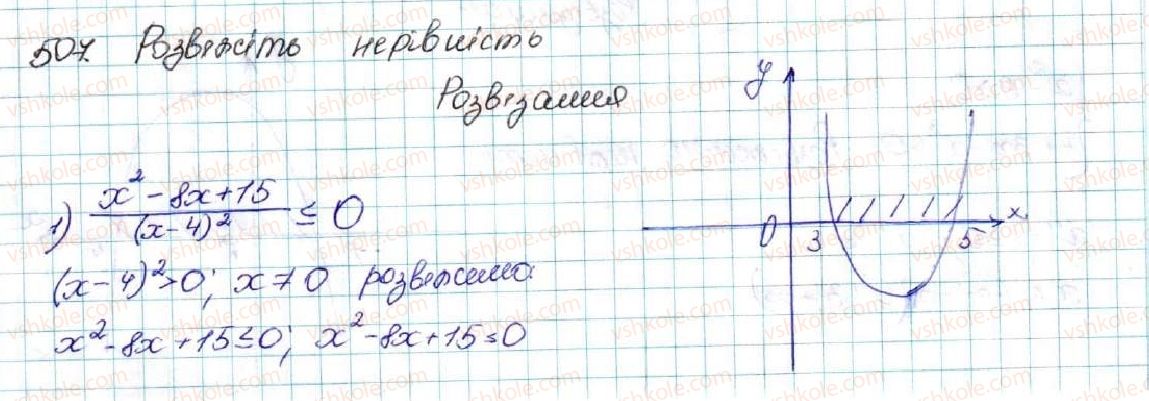 507. Розв'яжіть нерівність
Розв'язання
1) (x² - 8x + 15)/(x - 4)² ≤ 0
(x - 4)² > 0; x ≠ 0 розв'яжемо:
x² - 8x + 15 ≤ 0; x² - 8x + 15 = 0
y
0 3 5 x
vshkole.com